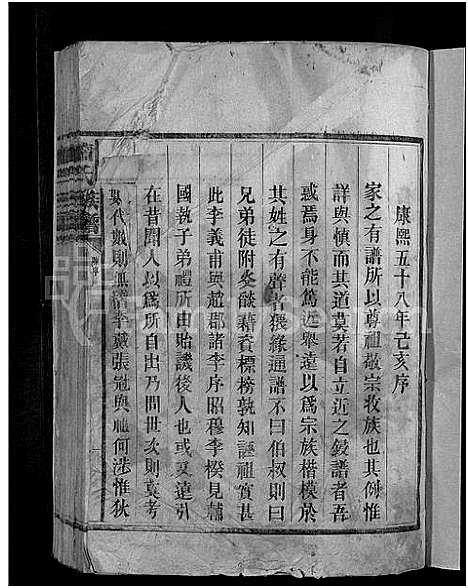 康熙五十八年己亥序
家之有譜所以尊祖敬宗收族也其例惟
詳與慎而其道莫若自立近之錢譜者吾
惑焉身不能篤近舉遠以為宗族楷模於
其姓之有聲者猥緣通譜不曰伯叔則曰
兄弟徒附炎𦦨藉資標榜孰知誣祖實甚
此李義甫與趙郡諸李序昭穆李揆見輔
國執子弟禮所由貽譏後人也或夏遠引
在昔聞人以為所自出乃問世次則莫考
點代數則無 李戴張冠與 何涉惟狄
氏族譜